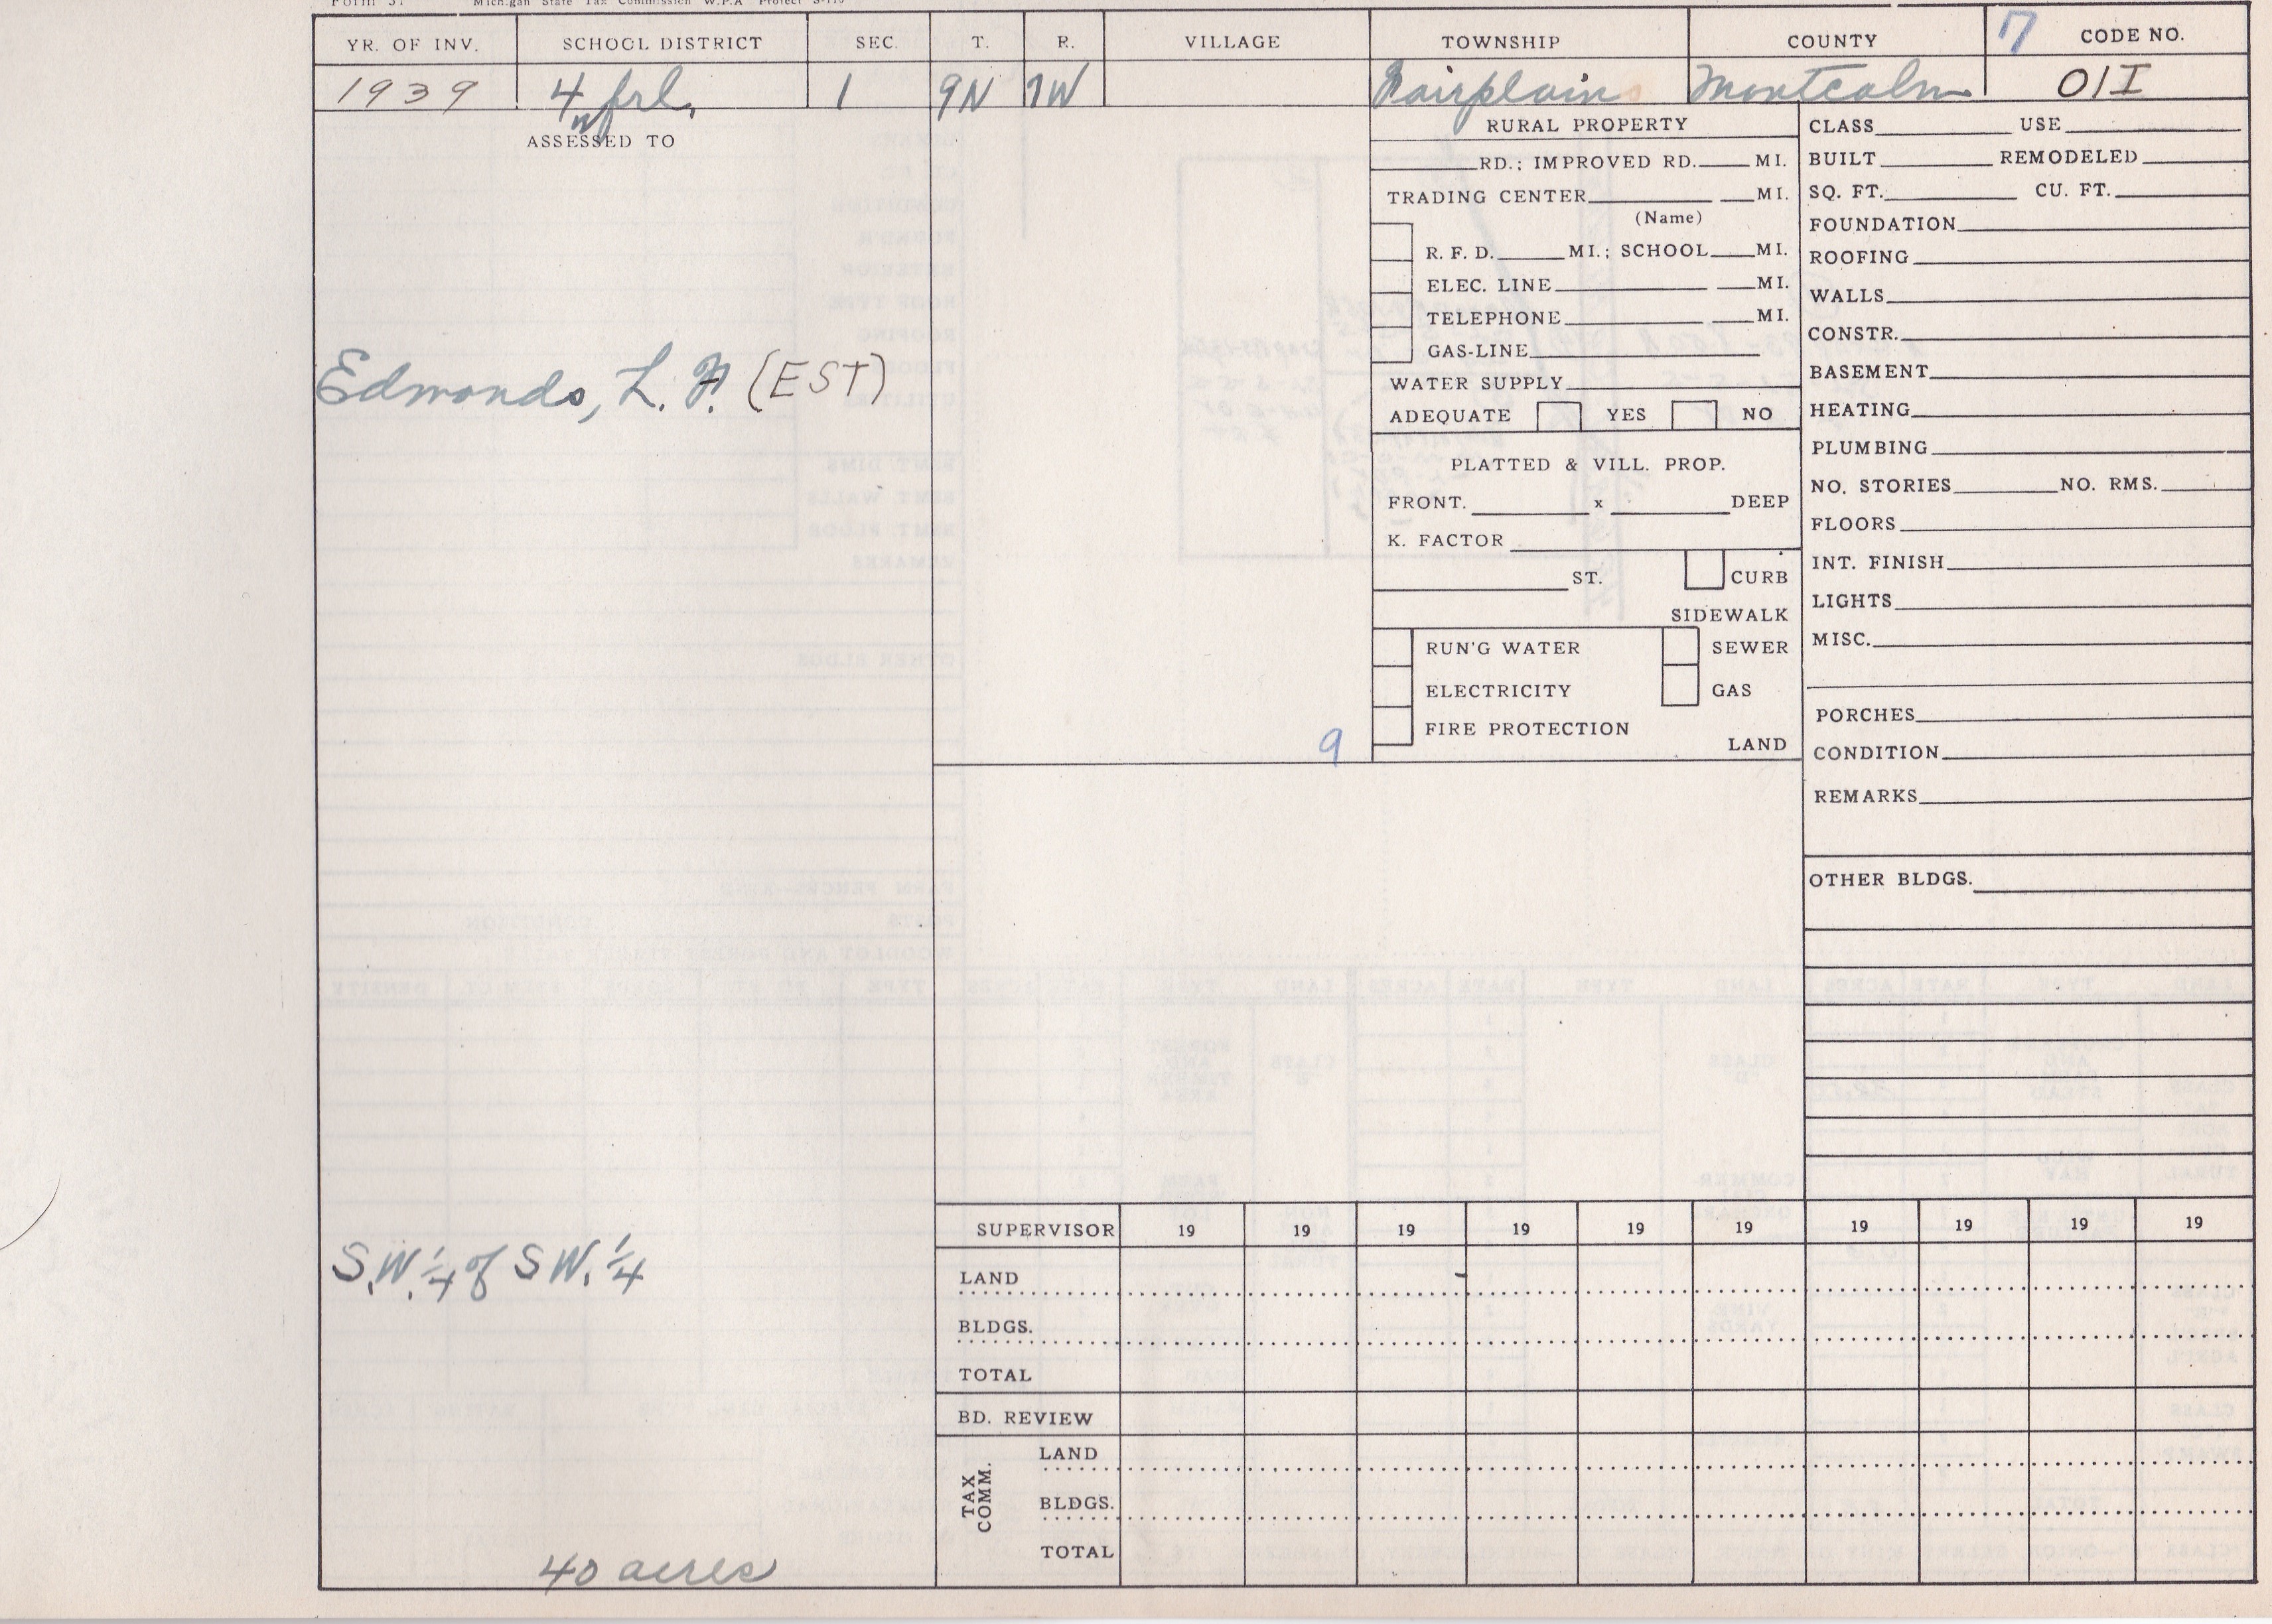 Michigan State Tax Commission W.P.A Project
YR. OF INV. SCHOOL DISTRICT SEC. T. R. VILLAGE TOWNSHIP COUNTY 7 CODE NO.
1939 4 frl. 1 9N 7W Fairplains Montcalm 01I
ASSESSED TO
Edmonds, L. F. (EST)
S.W. 1/4 of S W. 1/4
40 acres
9
RURAL PROPERTY
RD.; IMPROVED RD. MI.
TRADING CENTER MI.
(Name)
R. F. D. MI.; SCHOOL MI.
ELEC. LINE MI.
TELEPHONE MI.
GAS-LINE
WATER SUPPLY
ADEQUATE YES NO
PLATTED & VILL. PROP.
FRONT. x DEEP
K. FACTOR
ST. CURB
SIDEWALK
RUN'G WATER SEWER
ELECTRICITY GAS
FIRE PROTECTION
LAND
CLASS USE
BUILT REMODELED
SQ. FT. CU. FT.
FOUNDATION
ROOFING
WALLS
CONSTR.
BASEMENT
HEATING
PLUMBING
NO. STORIES NO. RMS.
FLOORS
INT. FINISH
LIGHTS
MISC.
PORCHES
CONDITION
REMARKS
OTHER BLDGS.
SUPERVISOR 19 19 19 19 19 19 19 19 19 19
LAND
BLDGS.
TOTAL
BD. REVIEW
TAX COMM.
LAND
BLDGS.
TOTAL